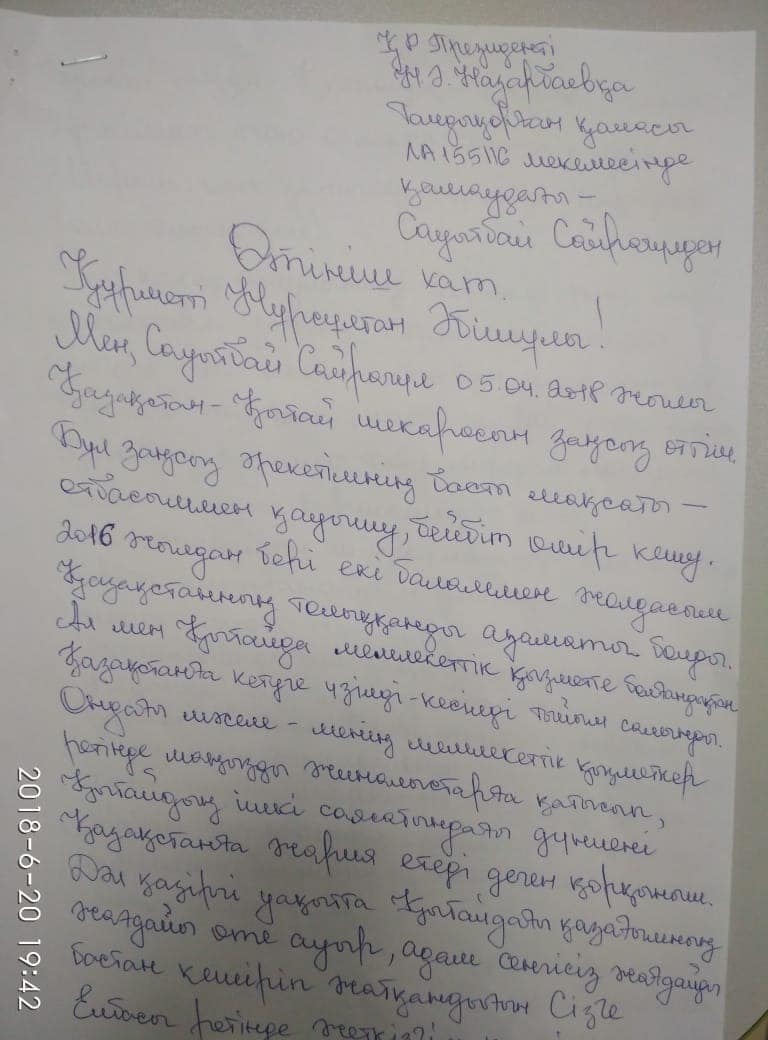 ҚР Президенті
Н.Ә. Назарбаевқа
Талдықорған қаласы
ЛА155116 мекемесінде
қамаудағы –
Сауытбай Сайрагүлден
Өтініш хат.
Құрметті Нұрсұлтан Әбішұлы!
Мен, Сауытбай Сайрагүл 05.04.2018 жылы
Қазақстан-Қытай шекарасын заңсыз өттім.
Бұл заңсыз әрекетімнің басты мақсаты –
отбасыммен қауышу, бейбіт өмір кешу.
2016 жылдан бері екі баламмен жолдасым
Қазақстанның толыққанды азаматы болды.
Ал мен Қытайда мемлекеттік қызметте болғандықтан
Қазақстанға кетуге үзілді-кесілді тыйым салынды.
Ондағы мәселе – менің мемлекеттік қызметкер
ретінде маңызды жиналыстарға қатысып,
Қытайдың ішкі саясатындағы дүниені
Қазақстанға жария етеді деген қорқыныш.
Дәл қазіргі уақытта Қытайдағы қазағымның
жағдайы өте ауыр, адам сенгісіз жағдайды
бастан кешіріп жатқандығын Сізге
Елбасы ретінде
2018-6-20 19:42